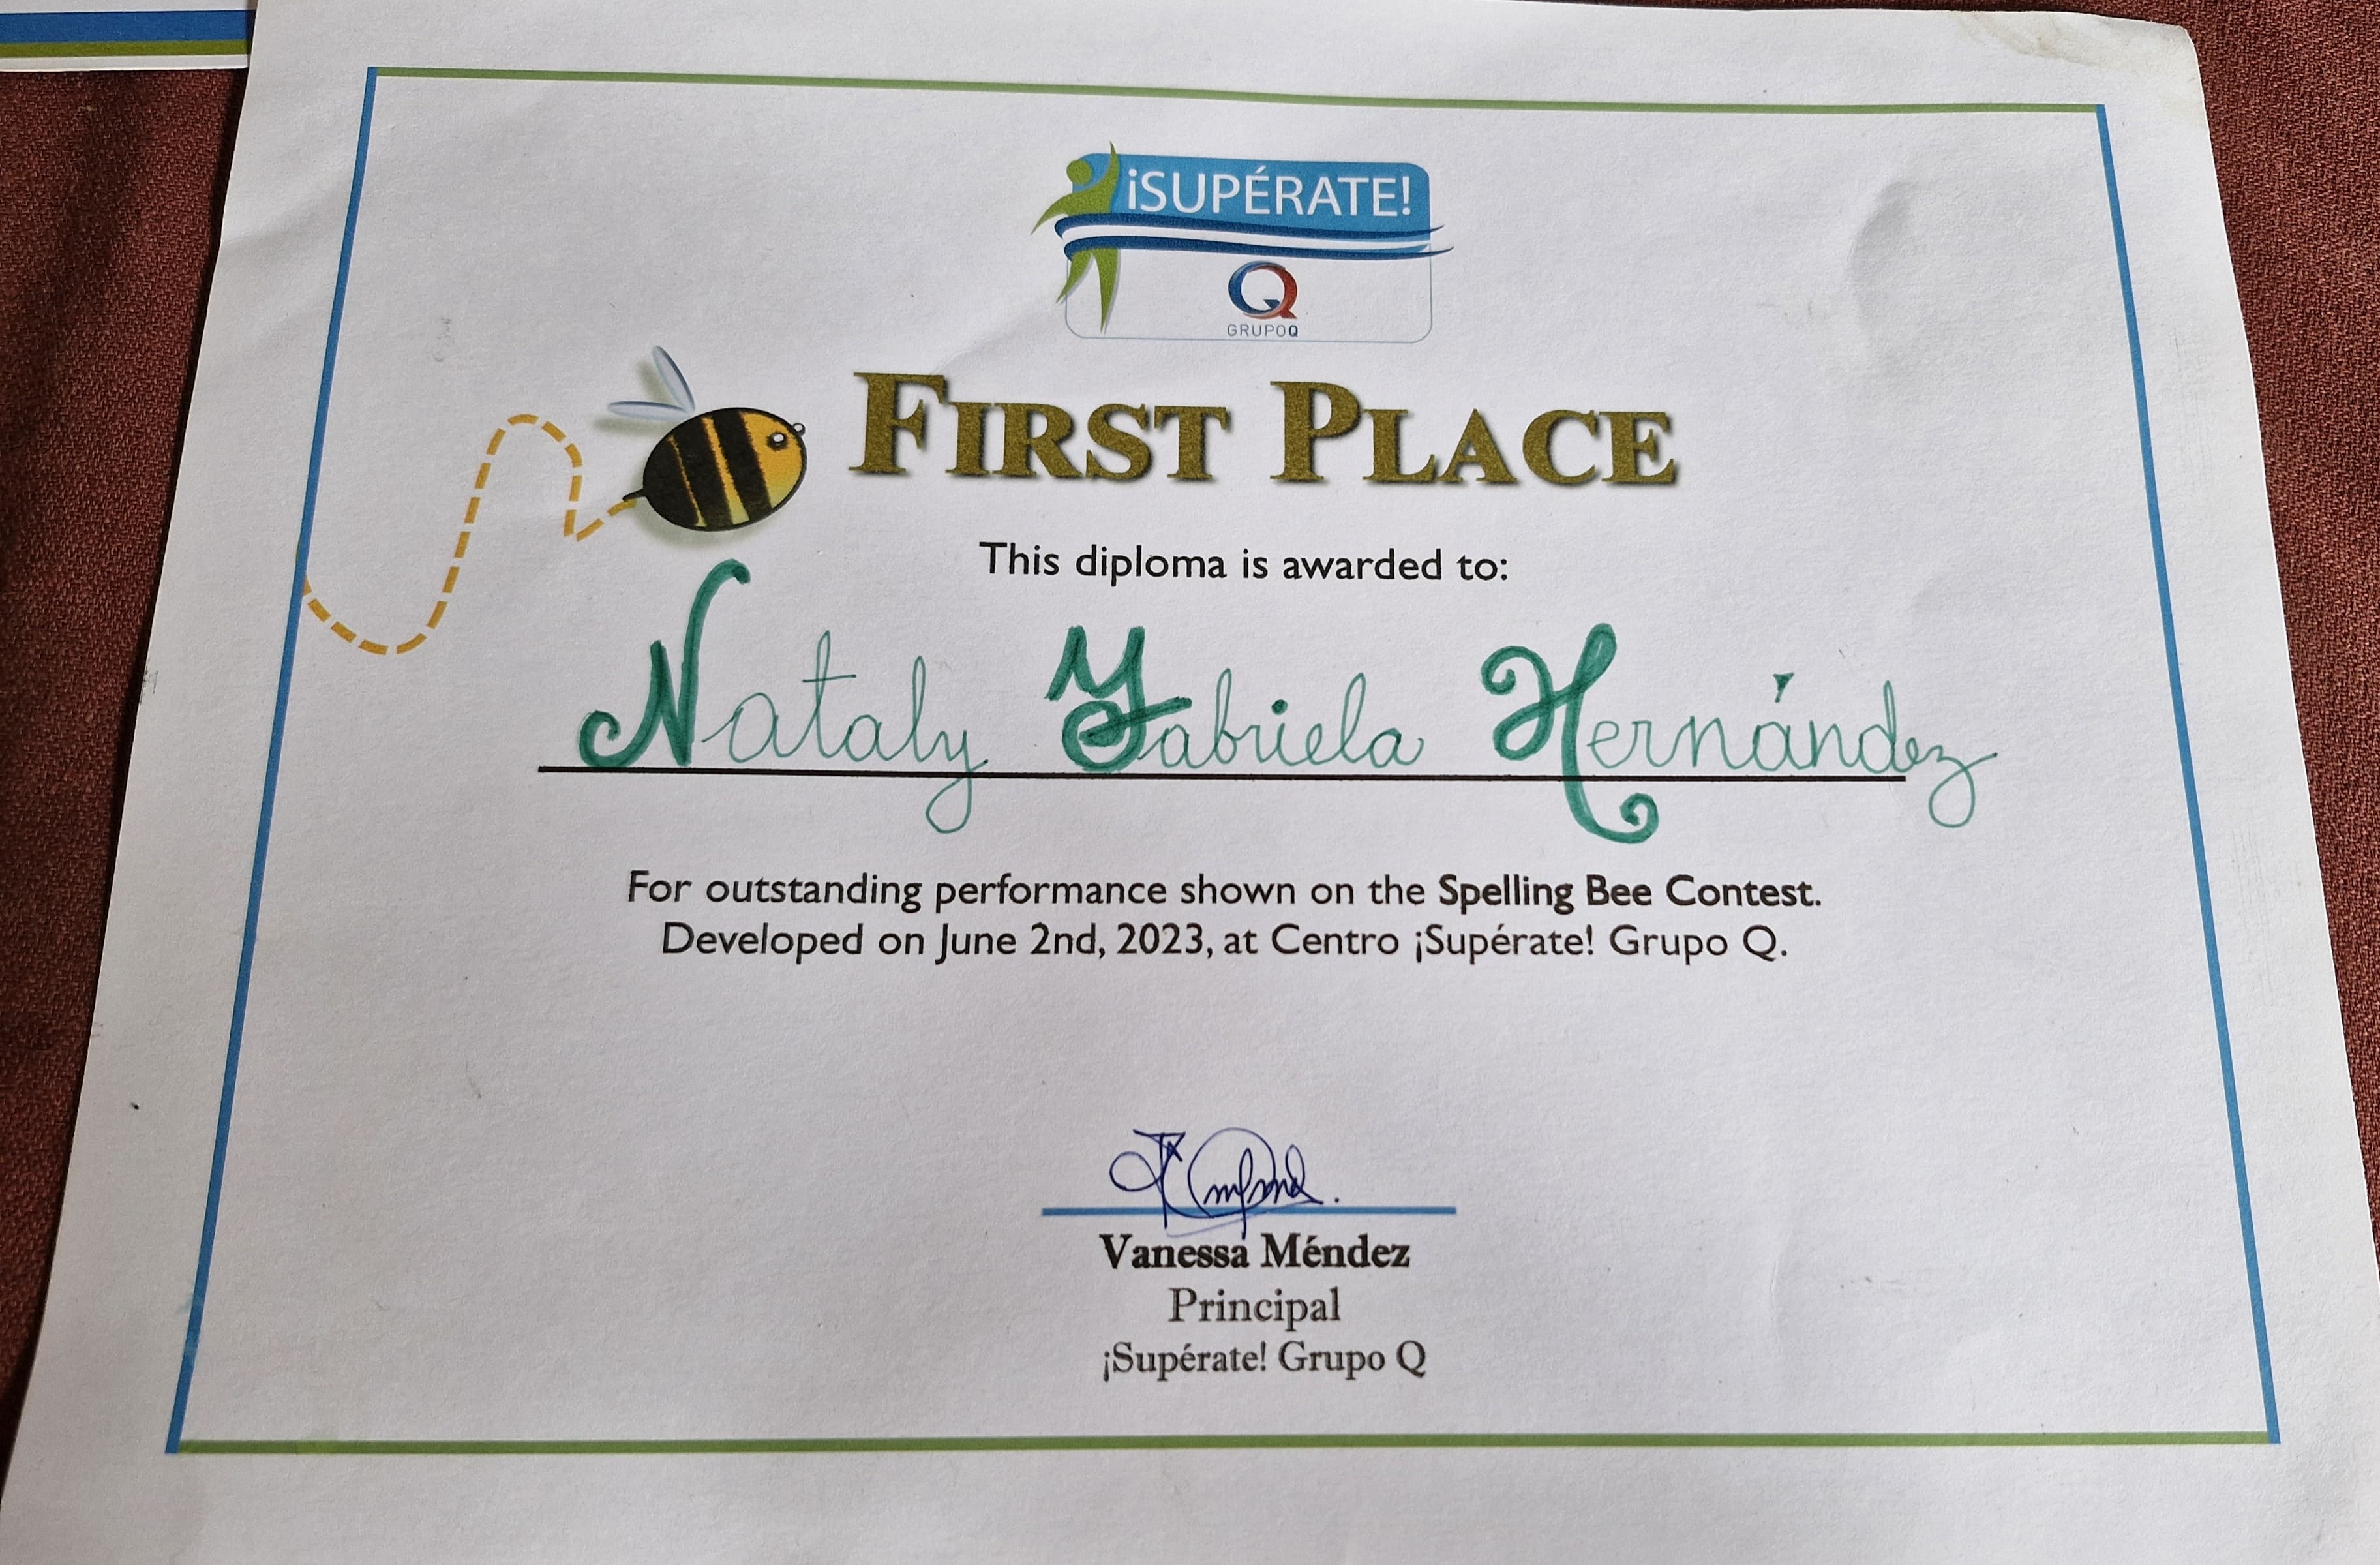 ¡SUPÉRATE!
GRUPOQ
FIRST PLACE
This diploma is awarded to:
Nataly Gabriela Hernández
For outstanding performance shown on the Spelling Bee Contest.
Developed on June 2nd, 2023, at Centro ¡Supérate! Grupo Q.
Vanessa Méndez
Principal
¡Supérate! Grupo Q